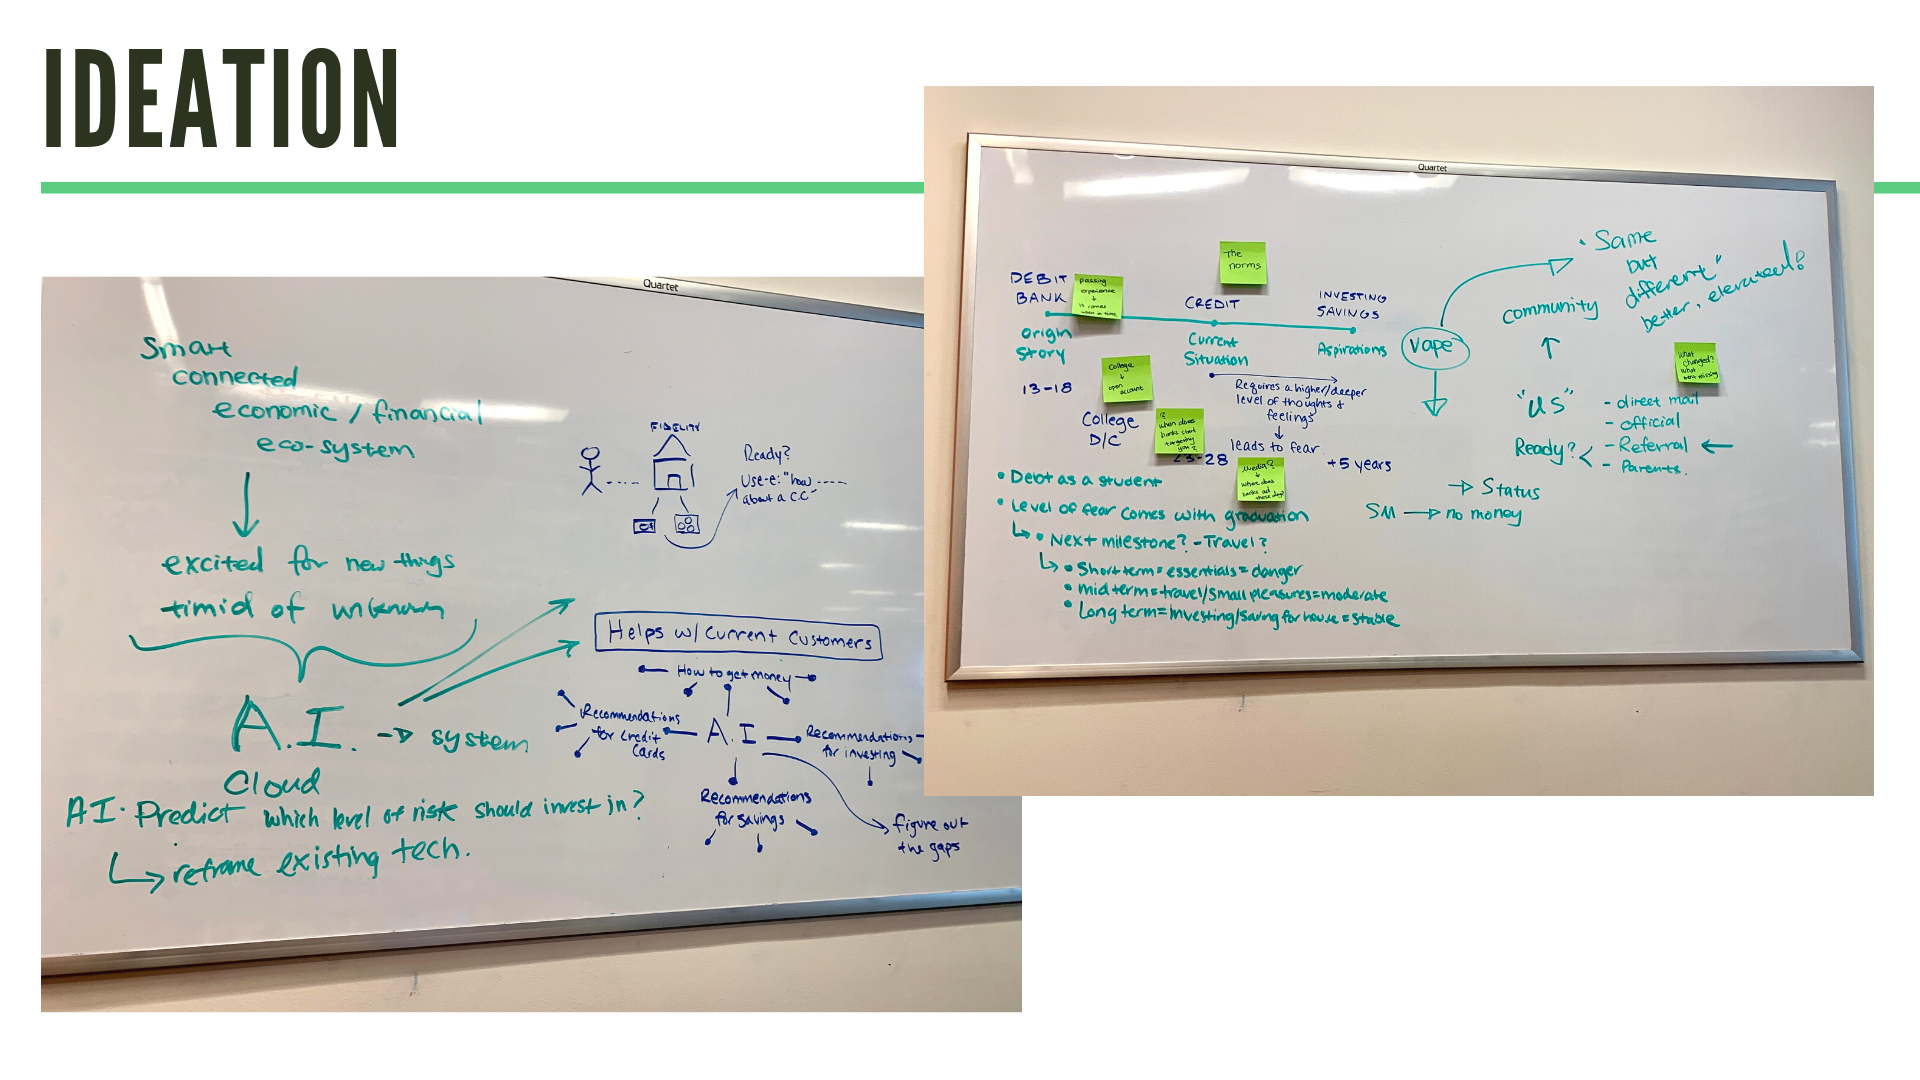 IDEATION
Quartet
Smart
connected
economic / financial
eco-system
excited for new things
timid of unknown
A.I. system
Cloud
AI: Predict which level of risk should invest in?
reframe existing tech.
FIDELITY
Ready?
Use-e: "how
about a CC"
Helps w/ Current Customers
How to get money
Recommendations
for Credit
Cards
A.I
Recommendations
for investing
Recommendations
for savings
figure out
the gaps
Quartet
The
norms
DEBIT
BANK
passing
experience
it comes
when in time
CREDIT
INVESTING
SAVINGS
origin
story
Current
Situation
Aspirations
13-18
College
open
account
College
D/C
when does
banks start
targeting
you?
Requires a higher/deeper
level of thoughts &
feelings
leads to fear
23-28
+5 years
Media?
where does
banks ad
these days?
• Debt as a student
• Level of fear comes with graduation
• Next milestone? - Travel?
• Short term = essentials = danger
• mid term = travel/small pleasures = moderate
• Long term = Investing/Saving for house = stable
Vape
"Same
but
different"
better, elevated!
community
"US"
Ready?
- direct mail
- official
- Referral
- Parents.
What
changed?
What
went missing
Status
SM no money